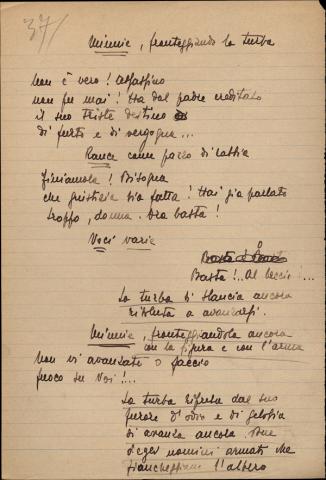 37/
Minnie, fronteggiando la turba
Non è vero! Assassino
non fu mai! Ha dal padre ereditato
il suo triste destino
di furti e di vergogna...
Rance come pazzo di rabbia
Finiamola! Bisogna
che giustizia sia fatta! Hai già parlato
troppo, donna. Ora basta!
Voci varie
Basta!.. Al laccio!...
La turba si slancia ancora
risoluta a avanzarsi.
Minnie, fronteggiandola ancora
con la figura e con l'arma
Non vi avanzate o faccio
fuoco su voi!...
La turba ripresa dal suo
furore d'odio e di gelosia
si avanza ancora.
uomini armati che
fiancheggiano l'albero